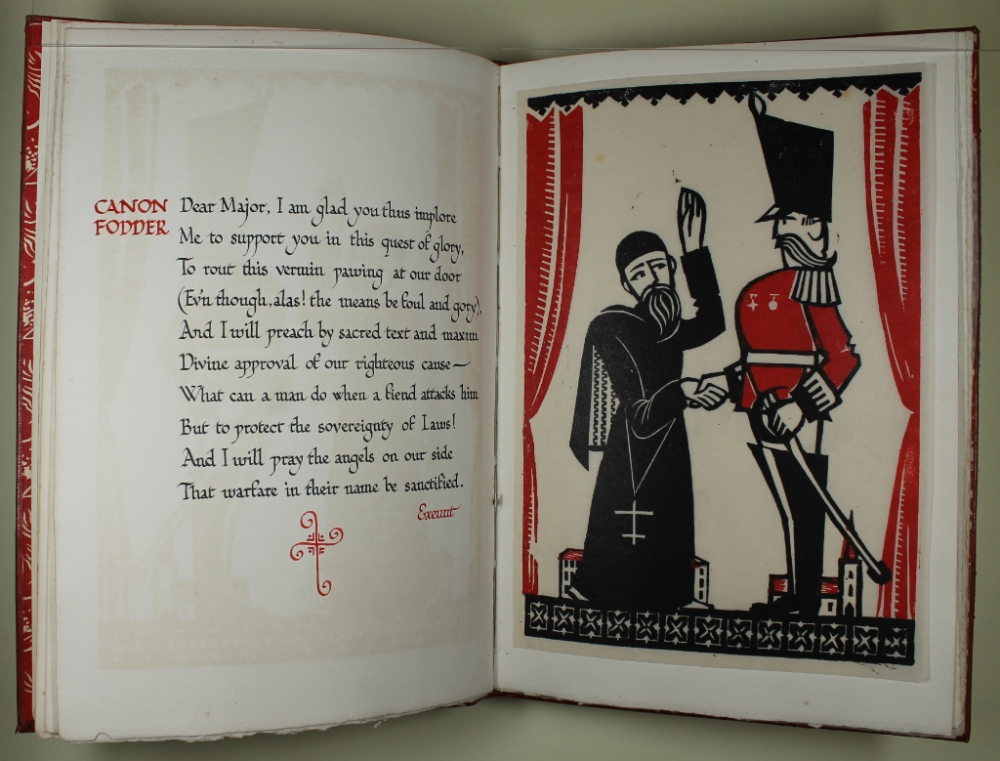 CANON
FODDER
Dear Major, I am glad you thus implore
Me to support you in this quest of glory,
To rout this vermin pawing at our door
(Ev'n though, alas! the means be foul and gory),
And I will preach by sacred text and maxim
Divine approval of our righteous cause—
What can a man do when a fiend attacks him
But to protect the sovereignty of Laws!
And I will pray the angels on our side
That warfare in their name be sanctified.
Exeunt